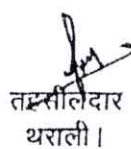 तहसीलदार
थराली।